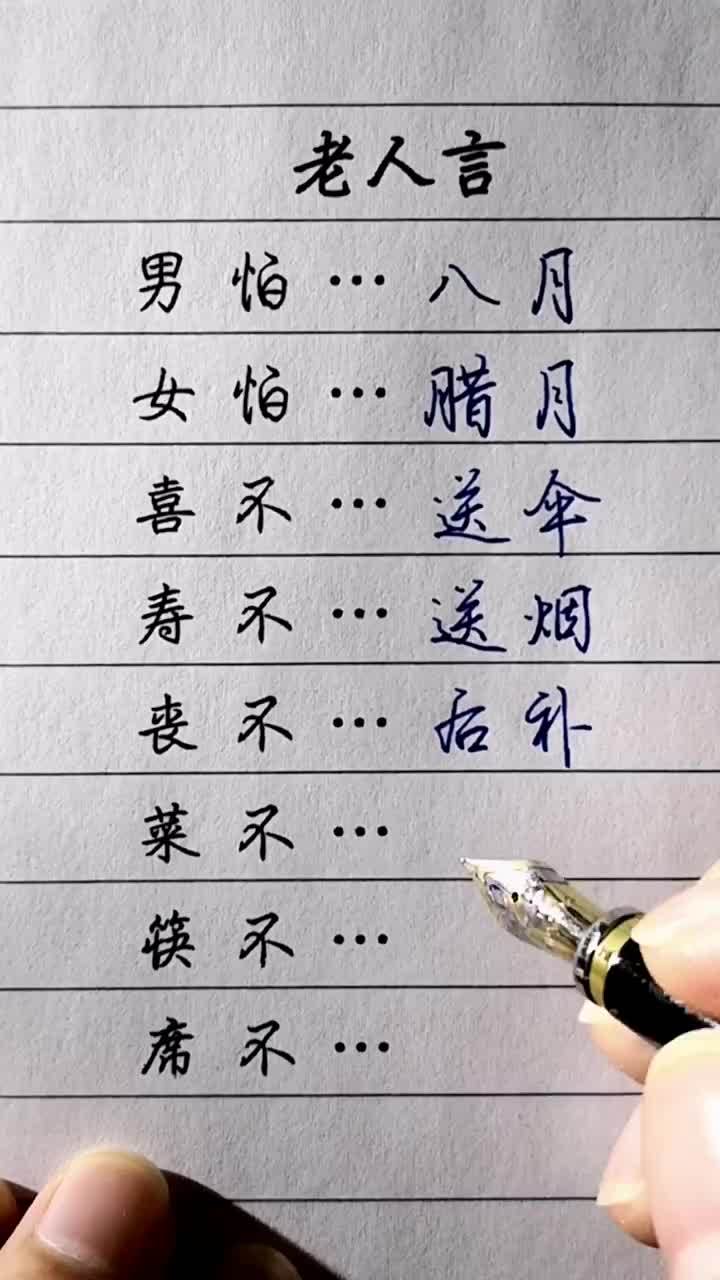 老人言
男怕…八月
女怕…腊月
喜不…送伞
寿不…送烟
丧不…后补
菜不…
筷不…
席不…